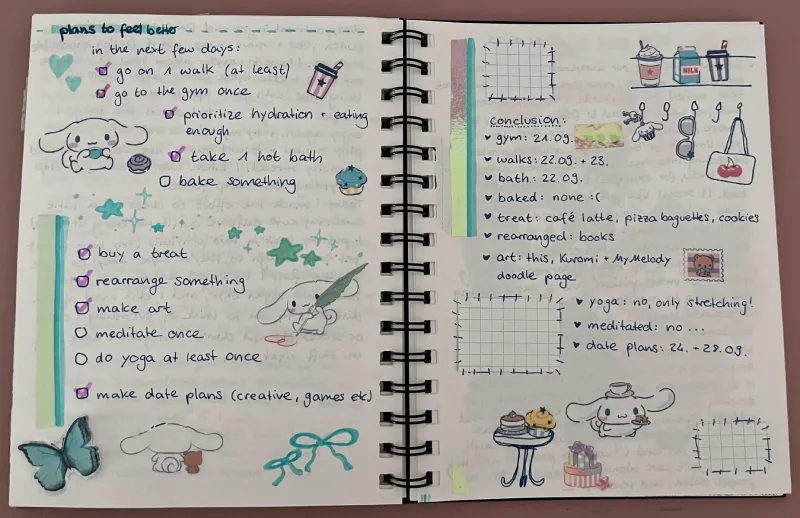 plans to feel better
in the next few days:
go on 1 walk (at least)
go to the gym once
prioritize hydration + eating
enough
take 1 hot bath
bake something
buy a treat
rearrange something
make art
meditate once
do yoga at least once
make date plans (creative, games etc)
MILK
conclusion:
gym: 21.09.
walks: 22.09. + 23.
bath: 22.09.
baked: none :(
treat: café latte, pizza baguettes, cookies
rearranged: books
art: this, Kuromi + MyMelody
doodle page
yoga: no, only stretching!
meditated: no ...
date plans: 24. + 28.09.